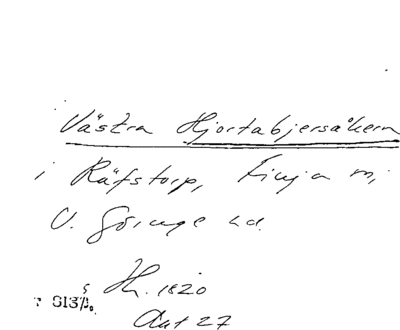 Västra Hjortabjersåkern
i Räfstorp, Finja m,
V. Göinge hd.
Hh. 1820
Akt 27